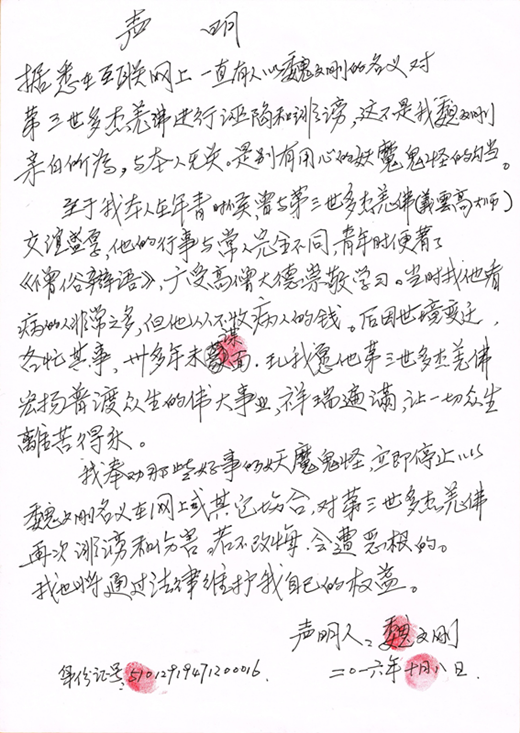 声 明
据悉在互联网上一直有人以魏文刚的名义对
第三世多杰羌佛进行诬陷和诽谤,这不是我魏文刚
亲自所为,与本人无关。是别有用心的妖魔鬼怪的勾当。
至于我本人在年青时候,曾与第三世多杰羌佛(義雲高大师)
交谊益厚,他的行事与常人完全不同,青年时便著了
《僧俗辩语》,广受高僧大德崇敬学习。当时找他看
病的人非常之多,但他从不收病人的钱。后因世境变迁,
各忙其事,卅多年未谋面.我愿他第三世多杰羌佛
宏扬普渡众生的伟大事业,祥瑞遍满,让一切众生
離苦得乐。
我奉劝那些好事的妖魔鬼怪,立即停止以
魏文刚名义在网上或其它场合,对第三世多杰羌佛
再次诽谤和伤害,若不改悔,会遭恶报的。
我也将通过法律维护我自己的权益。
声明人:魏文刚
身份证号:51012919471200016.
二〇一六年十月八日.